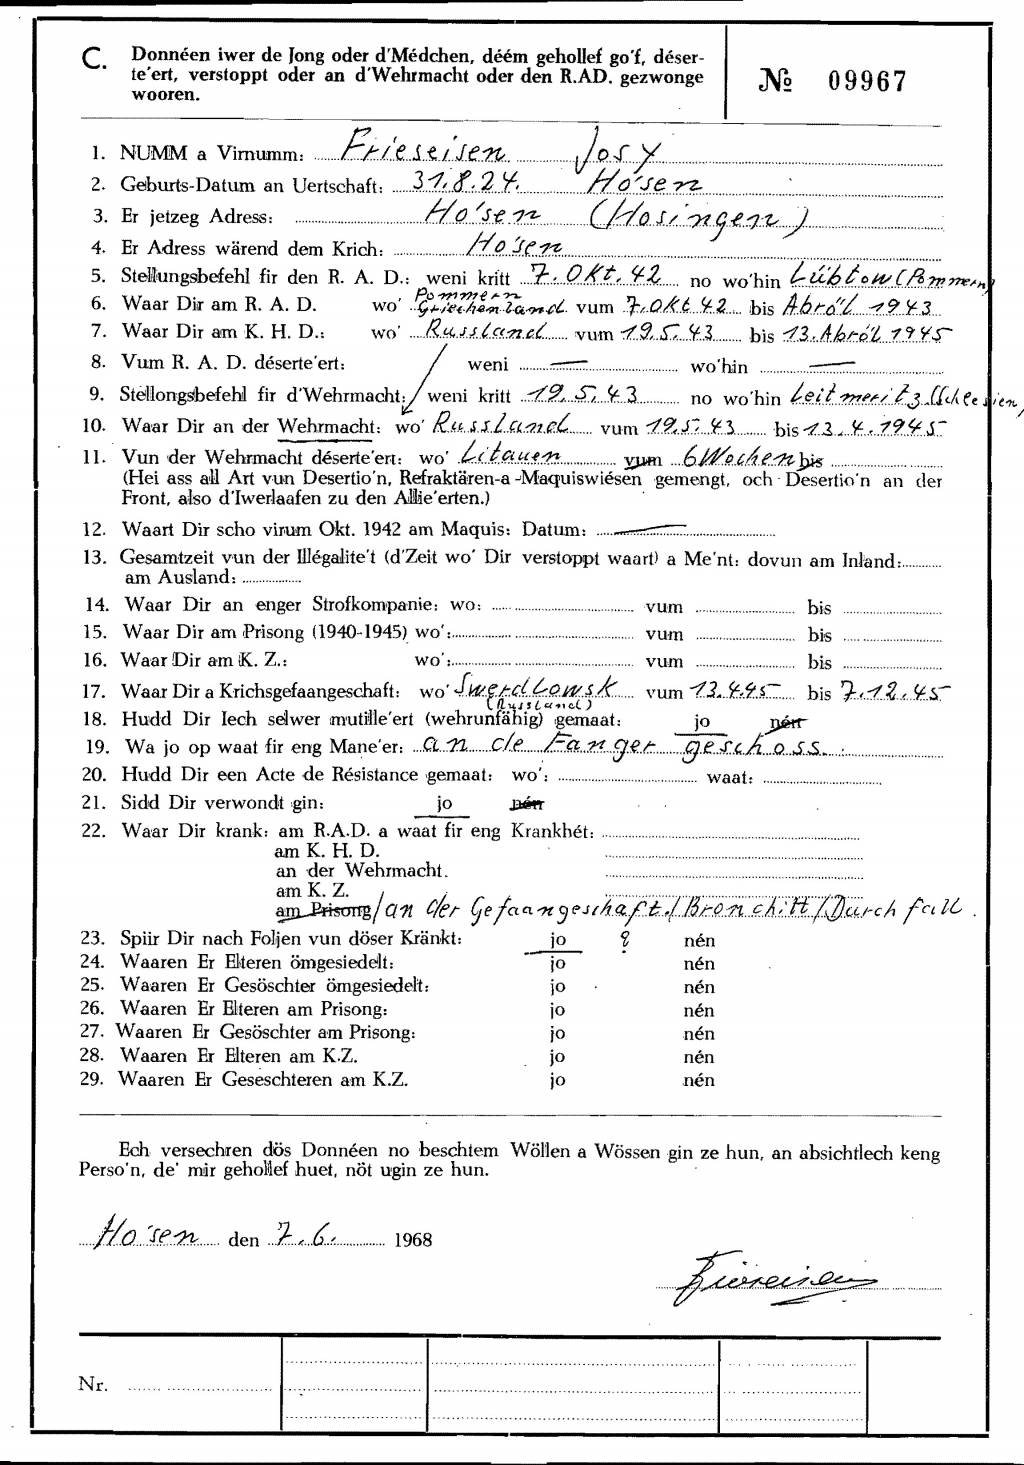 C. Donnéen iwer de Jong oder d'Médchen, déém gehollef go'f, déser-
te'ert, verstoppt oder an d'Wehrmacht oder den R.AD. gezwonge
wooren.
№ 09967
1. NUMM a Virnumm: Frieseisen Josy
2. Geburts-Datum an Uertschaft: 31.8.24. Ho'sen
3. Er jetzeg Adress: Ho'sen (Hosingen)
4. Er Adress wärend dem Krich: Ho'sen
5. Stellungsbefehl fir den R. A. D.: weni kritt 7. Okt. 42 no wo'hin Lübtow (Pommern)
6. Waar Dir am R. A. D. wo' Pommern Griechenland vum 7. Okt 42 bis Abröl 1943
7. Waar Dir am K. H. D.: wo' Russland vum 19.5.43 bis 13. Abröl 1945
8. Vum R. A. D. déserte'ert: weni — wo'hin —
9. Stellongsbefehl fir d'Wehrmacht: weni kritt 19.5.43 no wo'hin Leitmeritz (Schlesien)
10. Waar Dir an der Wehrmacht: wo' Russland vum 19.5.43 bis 13.4.1945
11. Vun der Wehrmacht déserte'ert: wo' Litauen vum 6 Wochen bis
(Hei ass all Art vun Desertio'n, Refraktären-a -Maquiswiésen gemengt, och Desertio'n an der
Front, also d'Iwerlaafen zu den Allie'erten.)
12. Waart Dir scho virum Okt. 1942 am Maquis: Datum: —
13. Gesamtzeit vun der Illégalite't (d'Zeit wo' Dir verstoppt waart) a Me'nt: dovun am Inland:
am Ausland:
14. Waar Dir an enger Strofkompanie: wo: vum bis
15. Waar Dir am Prisong (1940-1945) wo': vum bis
16. Waar Dir am K. Z.: wo': vum bis
17. Waar Dir a Krichsgefaangeschaft: wo' Swerdlowsk vum 13.4.45 bis 7.12.45
(Russland)
18. Hudd Dir Iech selwer mutille'ert (wehrunfähig) gemaat: jo nén
19. Wa jo op waat fir eng Mane'er: an de Fanger geschoss.
20. Hudd Dir een Acte de Résistance gemaat: wo': waat:
21. Sidd Dir verwondt gin: jo nén
22. Waar Dir krank: am R.A.D. a waat fir eng Krankhét:
am K. H. D.
an der Wehrmacht.
am K. Z.
am Prisong / an der Gefaangeschaft / Bronchitt / Durchfall.
23. Spiir Dir nach Foljen vun döser Kränkt: jo ? nén
24. Waaren Er Elteren ömgesiedelt: jo nén
25. Waaren Er Gesöschter ömgesiedelt: jo nén
26. Waaren Er Elteren am Prisong: jo nén
27. Waaren Er Gesöschter am Prisong: jo nén
28. Waaren Er Elteren am K.Z. jo nén
29. Waaren Er Geseschteren am K.Z. jo nén
Ech versechren dös Donnéen no beschtem Wöllen a Wössen gin ze hun, an absichtlech keng
Perso'n, de' mir gehollef huet, nöt ugin ze hun.
Ho'sen den 7.6. 1968
Frieseisen
Nr.